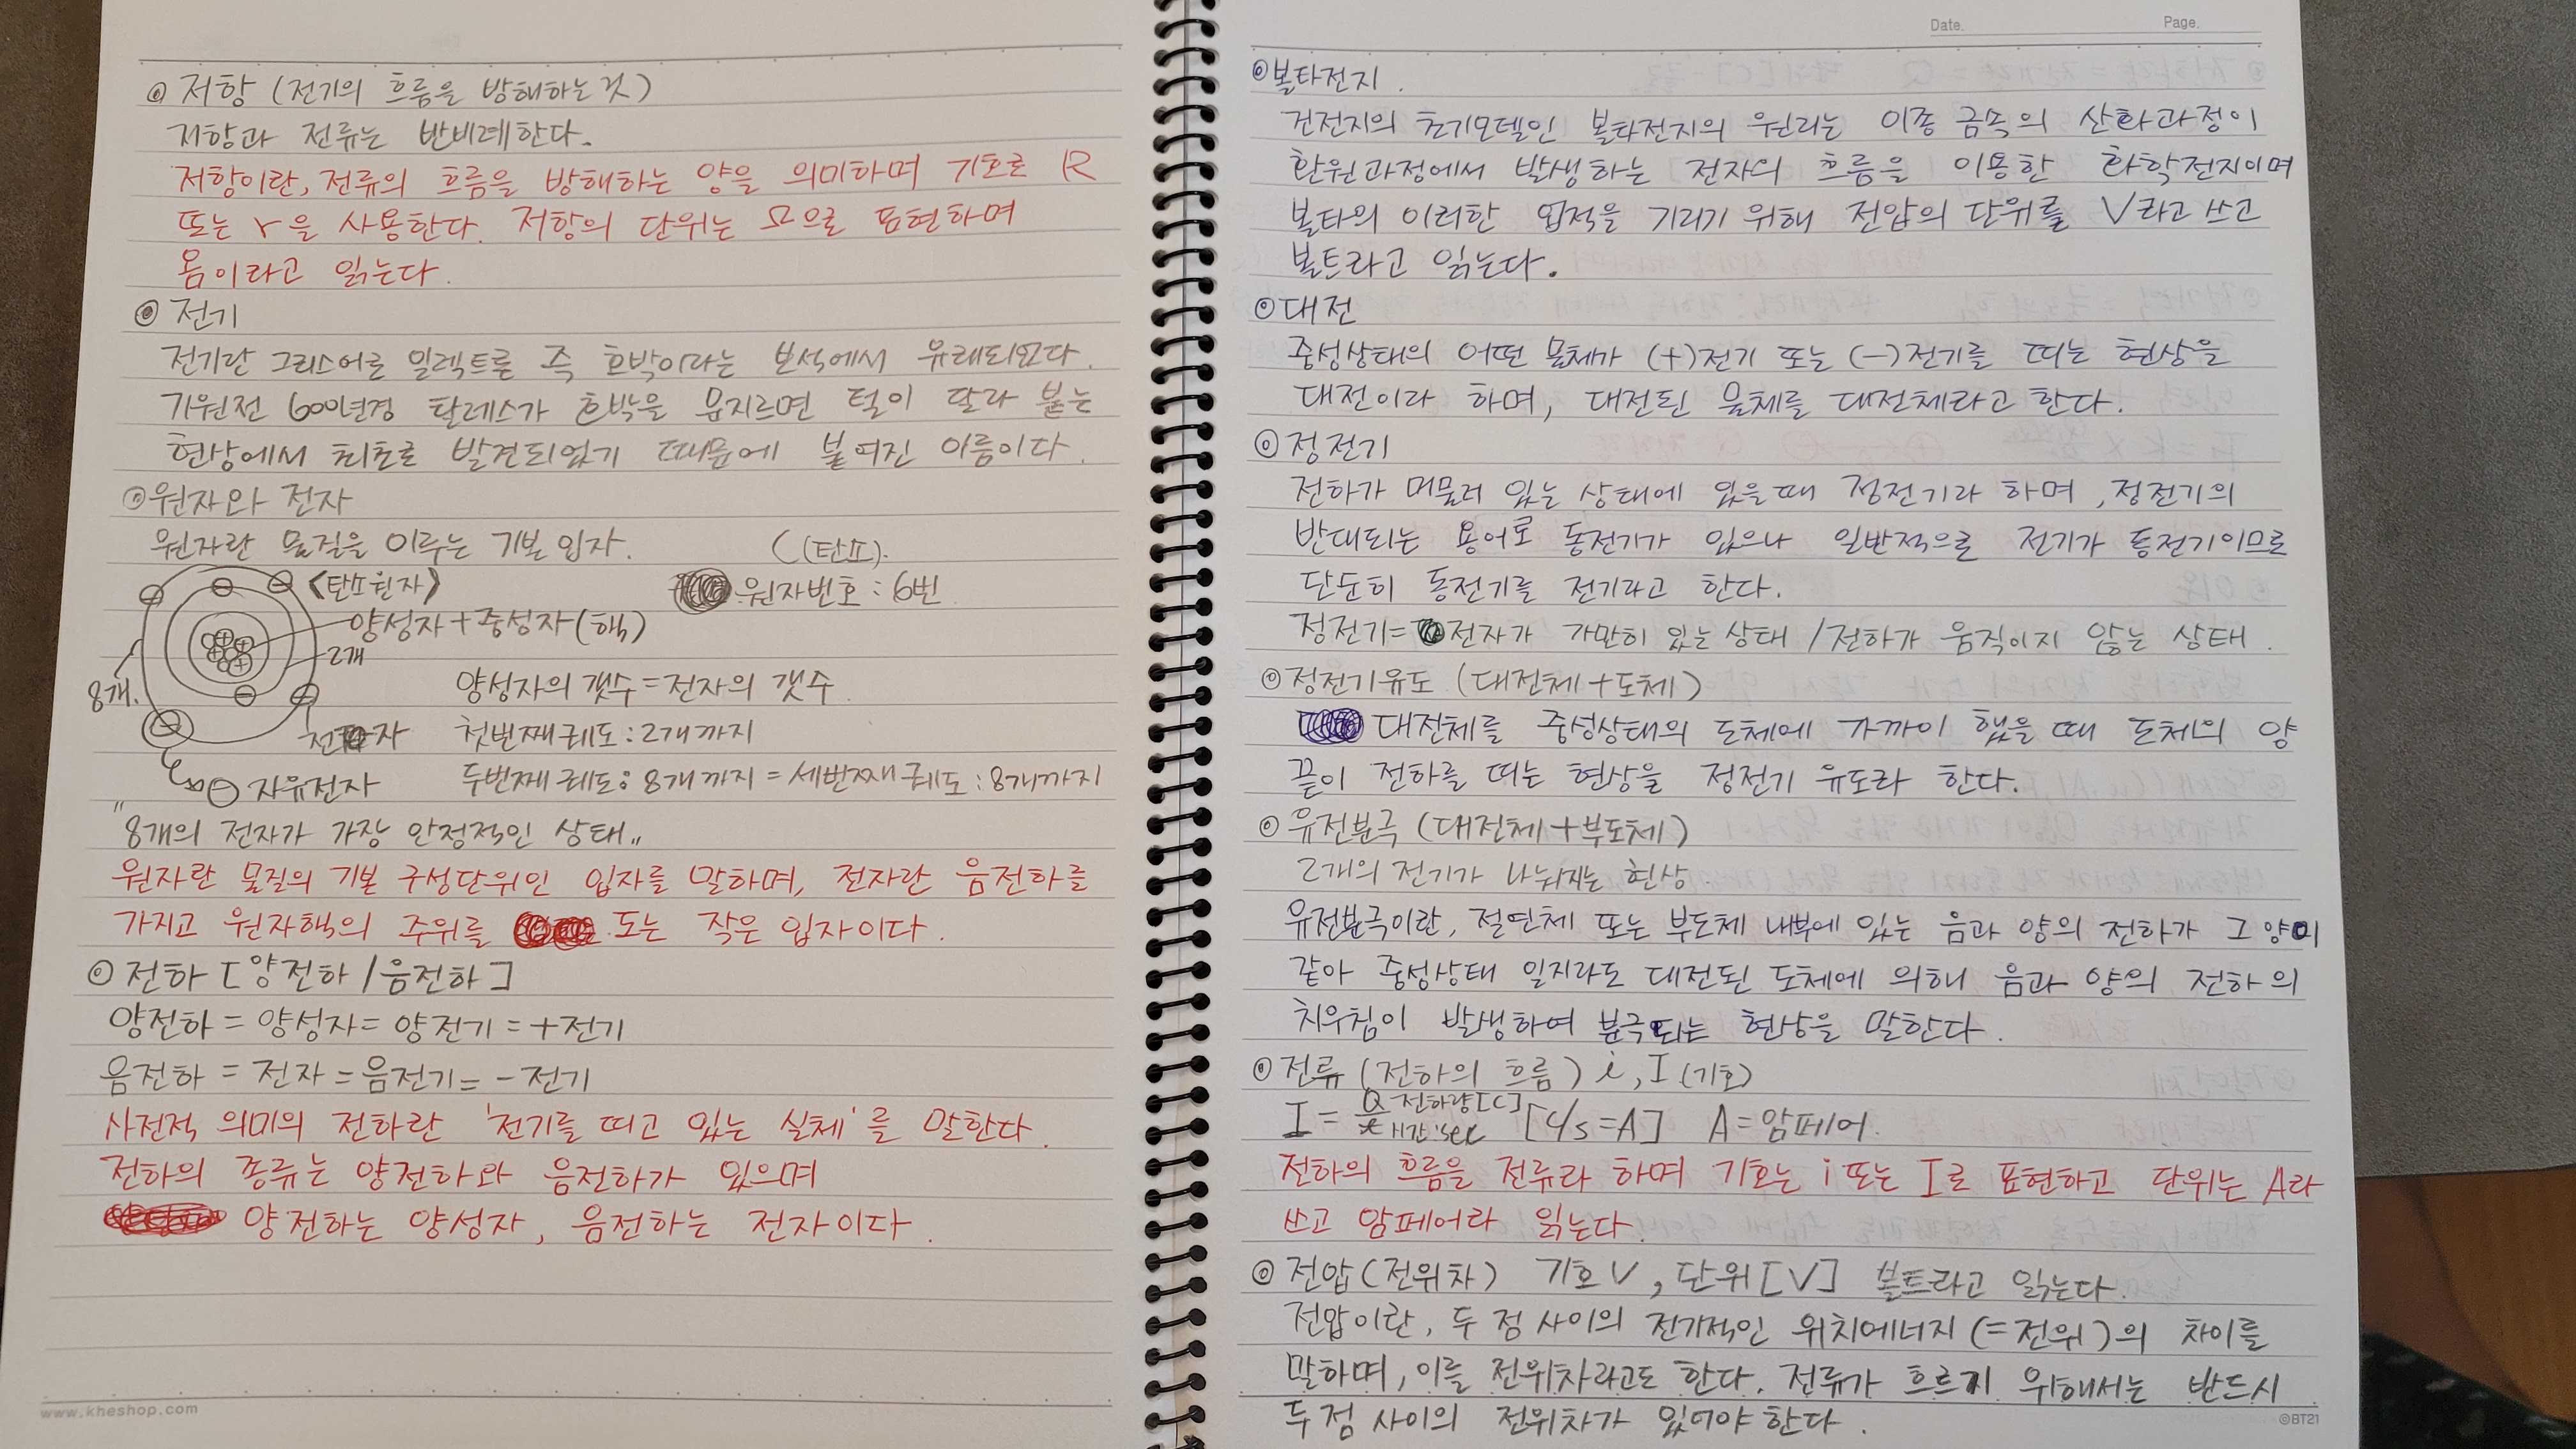 ◎ 저항 (전기의 흐름을 방해하는 것)
저항과 전류는 반비례한다.
저항이란, 전류의 흐름을 방해하는 양을 의미하며 기호로 R
또는 r을 사용한다. 저항의 단위는 Ω으로 표현하며
옴이라고 읽는다.
◎ 전기
전기란 그리스어로 일렉트론 즉 호박이라는 보석에서 유래되었다.
기원전 600년경 탈레스가 호박을 문지르면 털이 달라 붙는
현상에서 최초로 발견되었기 때문에 붙여진 이름이다.
◎ 원자와 전자
원자란 물질을 이루는 기본 입자.
C(탄소).
<탄소원자>
원자번호 : 6번
양성자+중성자(핵)
2개
8개.
양성자의 갯수=전자의 갯수
전자
첫번째궤도:2개까지
⊖ 자유전자
두번째궤도: 8개까지 = 세번째궤도:8개까지
"8개의 전자가 가장 안정적인 상태"
원자란 물질의 기본 구성단위인 입자를 말하며, 전자란 음전하를
가지고 원자핵의 주위를 도는 작은 입자이다.
◎ 전하 [양전하/음전하]
양전하 = 양성자= 양전기 = +전기
음전하 = 전자 =음전기= -전기
사전적 의미의 전하란 '전기를 띠고 있는 실체'를 말한다.
전하의 종류는 양전하와 음전하가 있으며
양전하는 양성자, 음전하는 전자이다.
Date. Page.
◎볼타전지.
건전지의 초기모델인 볼타전지의 원리는 이종 금속의 산화과정이
환원과정에서 발생하는 전자의 흐름을 이용한 화학전지이며
볼타의 이러한 업적을 기리기 위해 전압의 단위를 V라고 쓰고
볼트라고 읽는다.
◎대전
중성상태의 어떤 물체가 (+)전기 또는 (-)전기를 띠는 현상을
대전이라 하며, 대전된 물체를 대전체라고 한다.
◎정전기
전하가 머물러 있는 상태에 있을때 정전기라 하며, 정전기의
반대되는 용어로 동전기가 있으나 일반적으로 전기가 동전기이므로
단순히 동전기를 전기라고 한다.
정전기= 전자가 가만히 있는상태 /전하가 움직이지 않는 상태.
◎정전기유도 (대전체+도체)
대전체를 중성상태의 도체에 가까이 했을 때 도체의 양
끝이 전하를 띠는 현상을 정전기 유도라 한다.
◎ 유전분극 (대전체+부도체)
2개의 전기가 나눠지는 현상.
유전분극이란, 절연체 또는 부도체 내부에 있는 음과 양의 전하가 그 양이
같아 중성상태 일지라도 대전된 도체에 의해 음과 양의 전하의
치우침이 발생하여 분극되는 현상을 말한다.
◎ 전류 (전하의 흐름) i, I (기호)
I = Q 전하량[C] / t 시간:sec [C/s=A] A=암페어.
전하의 흐름을 전류라 하며 기호는 i또는 I로 표현하고 단위는 A라
쓰고 암페어라 읽는다.
◎ 전압 (전위차) 기호 V, 단위[V] 볼트라고 읽는다.
전압이란, 두 점 사이의 전기적인 위치에너지(=전위)의 차이를
말하며, 이를 전위차라고도 한다. 전류가 흐르기 위해서는 반드시
두 점 사이의 전위차가 있어야 한다.
www.kheshop.com
©BT21